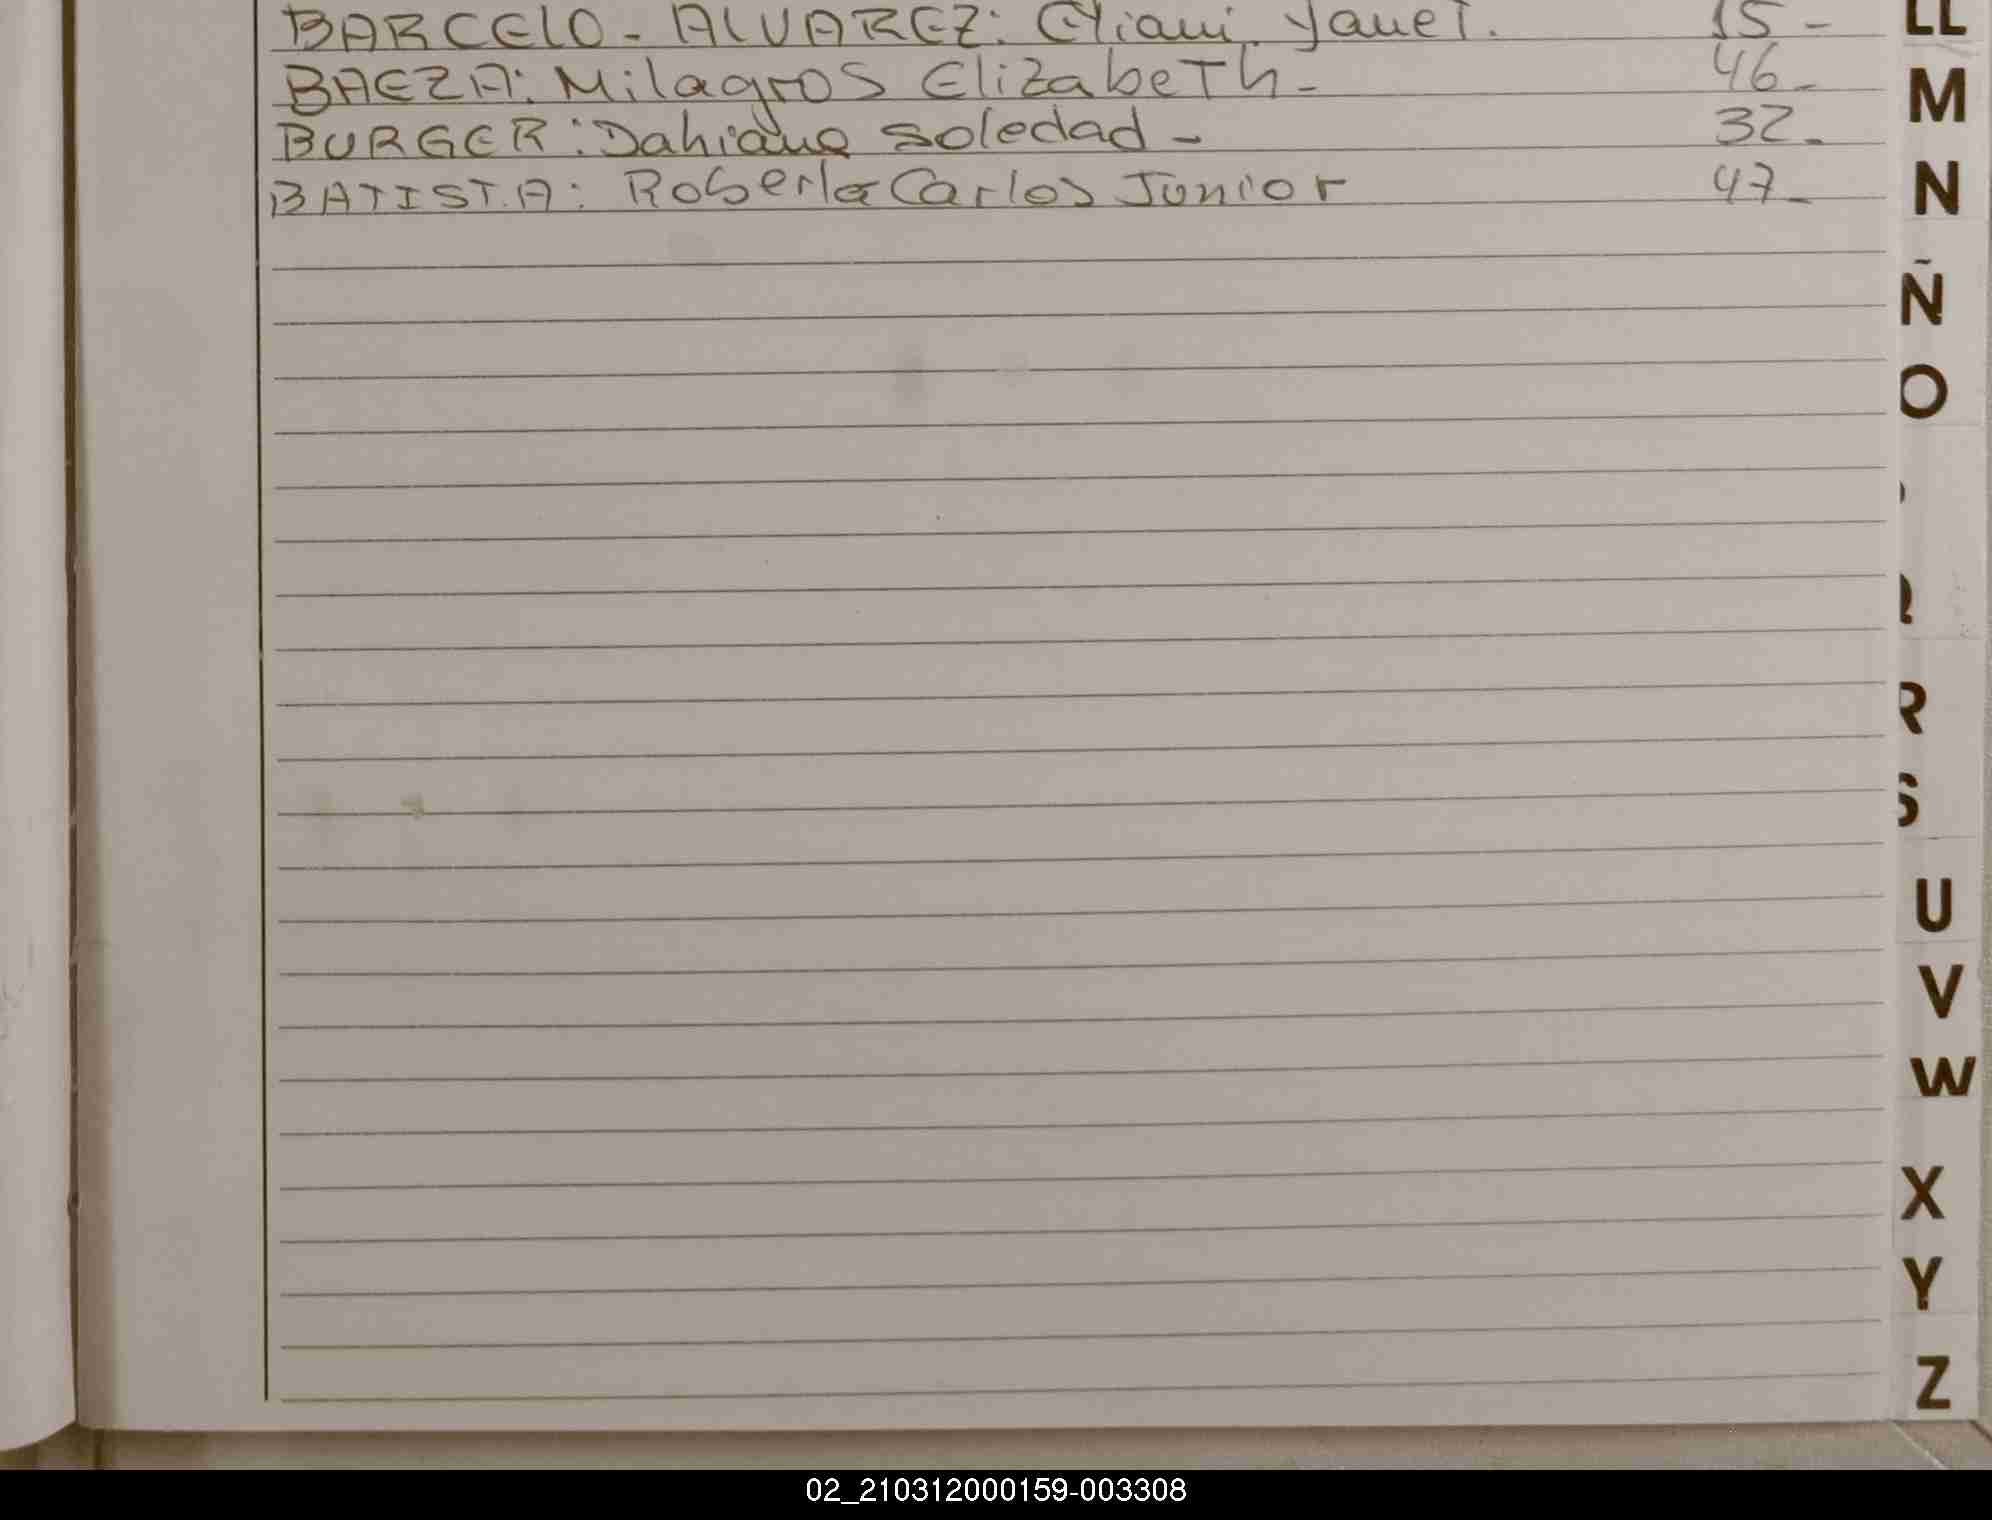 BARCELO - ALVAREZ: Eliani. Yanet. 15 -
BAEZA: Milagros Elizabeth - 46 -
BURGER: Dahiana Soledad - 32 -
BATISTA: Carlos Junior 47 -
LL
M
N
Ñ
O
R
S
U
V
W
X
Y
Z
02_210312000159-003308